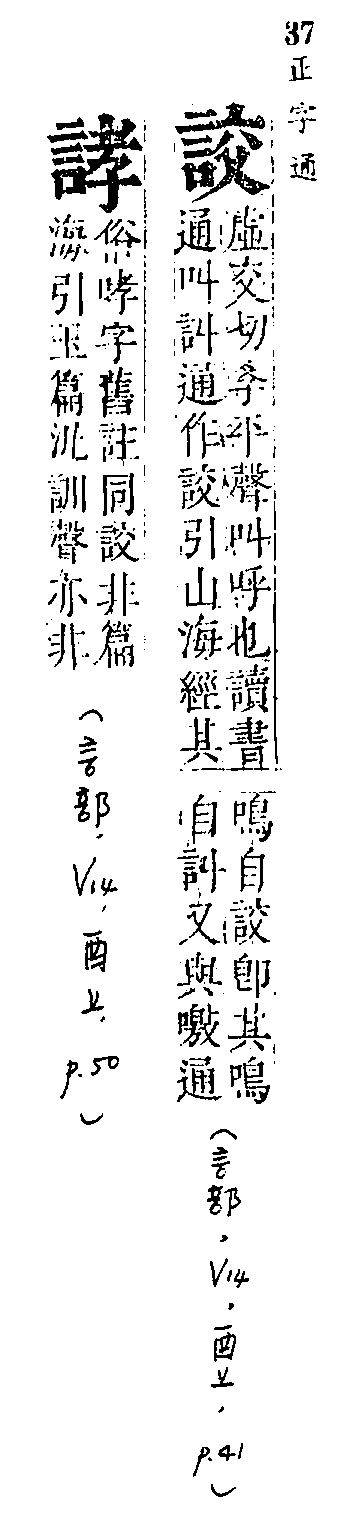 37 正字通
詨
虛交切孝平聲叫呼也讀書
通叫訆通作詨引山海經其
鳴自詨卽其鳴
自訆又與噭通
(言部, V14, 酉上, p.41)
誟
俗哮字舊註同詨非篇
海引玉篇訓聲亦非
(言部, V14, 酉上, p.50)